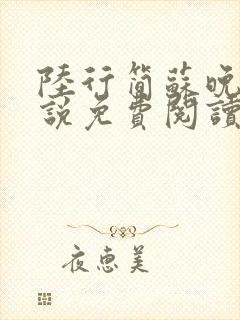 陸行簡蘇晚
説免費閱讀
夜惠美